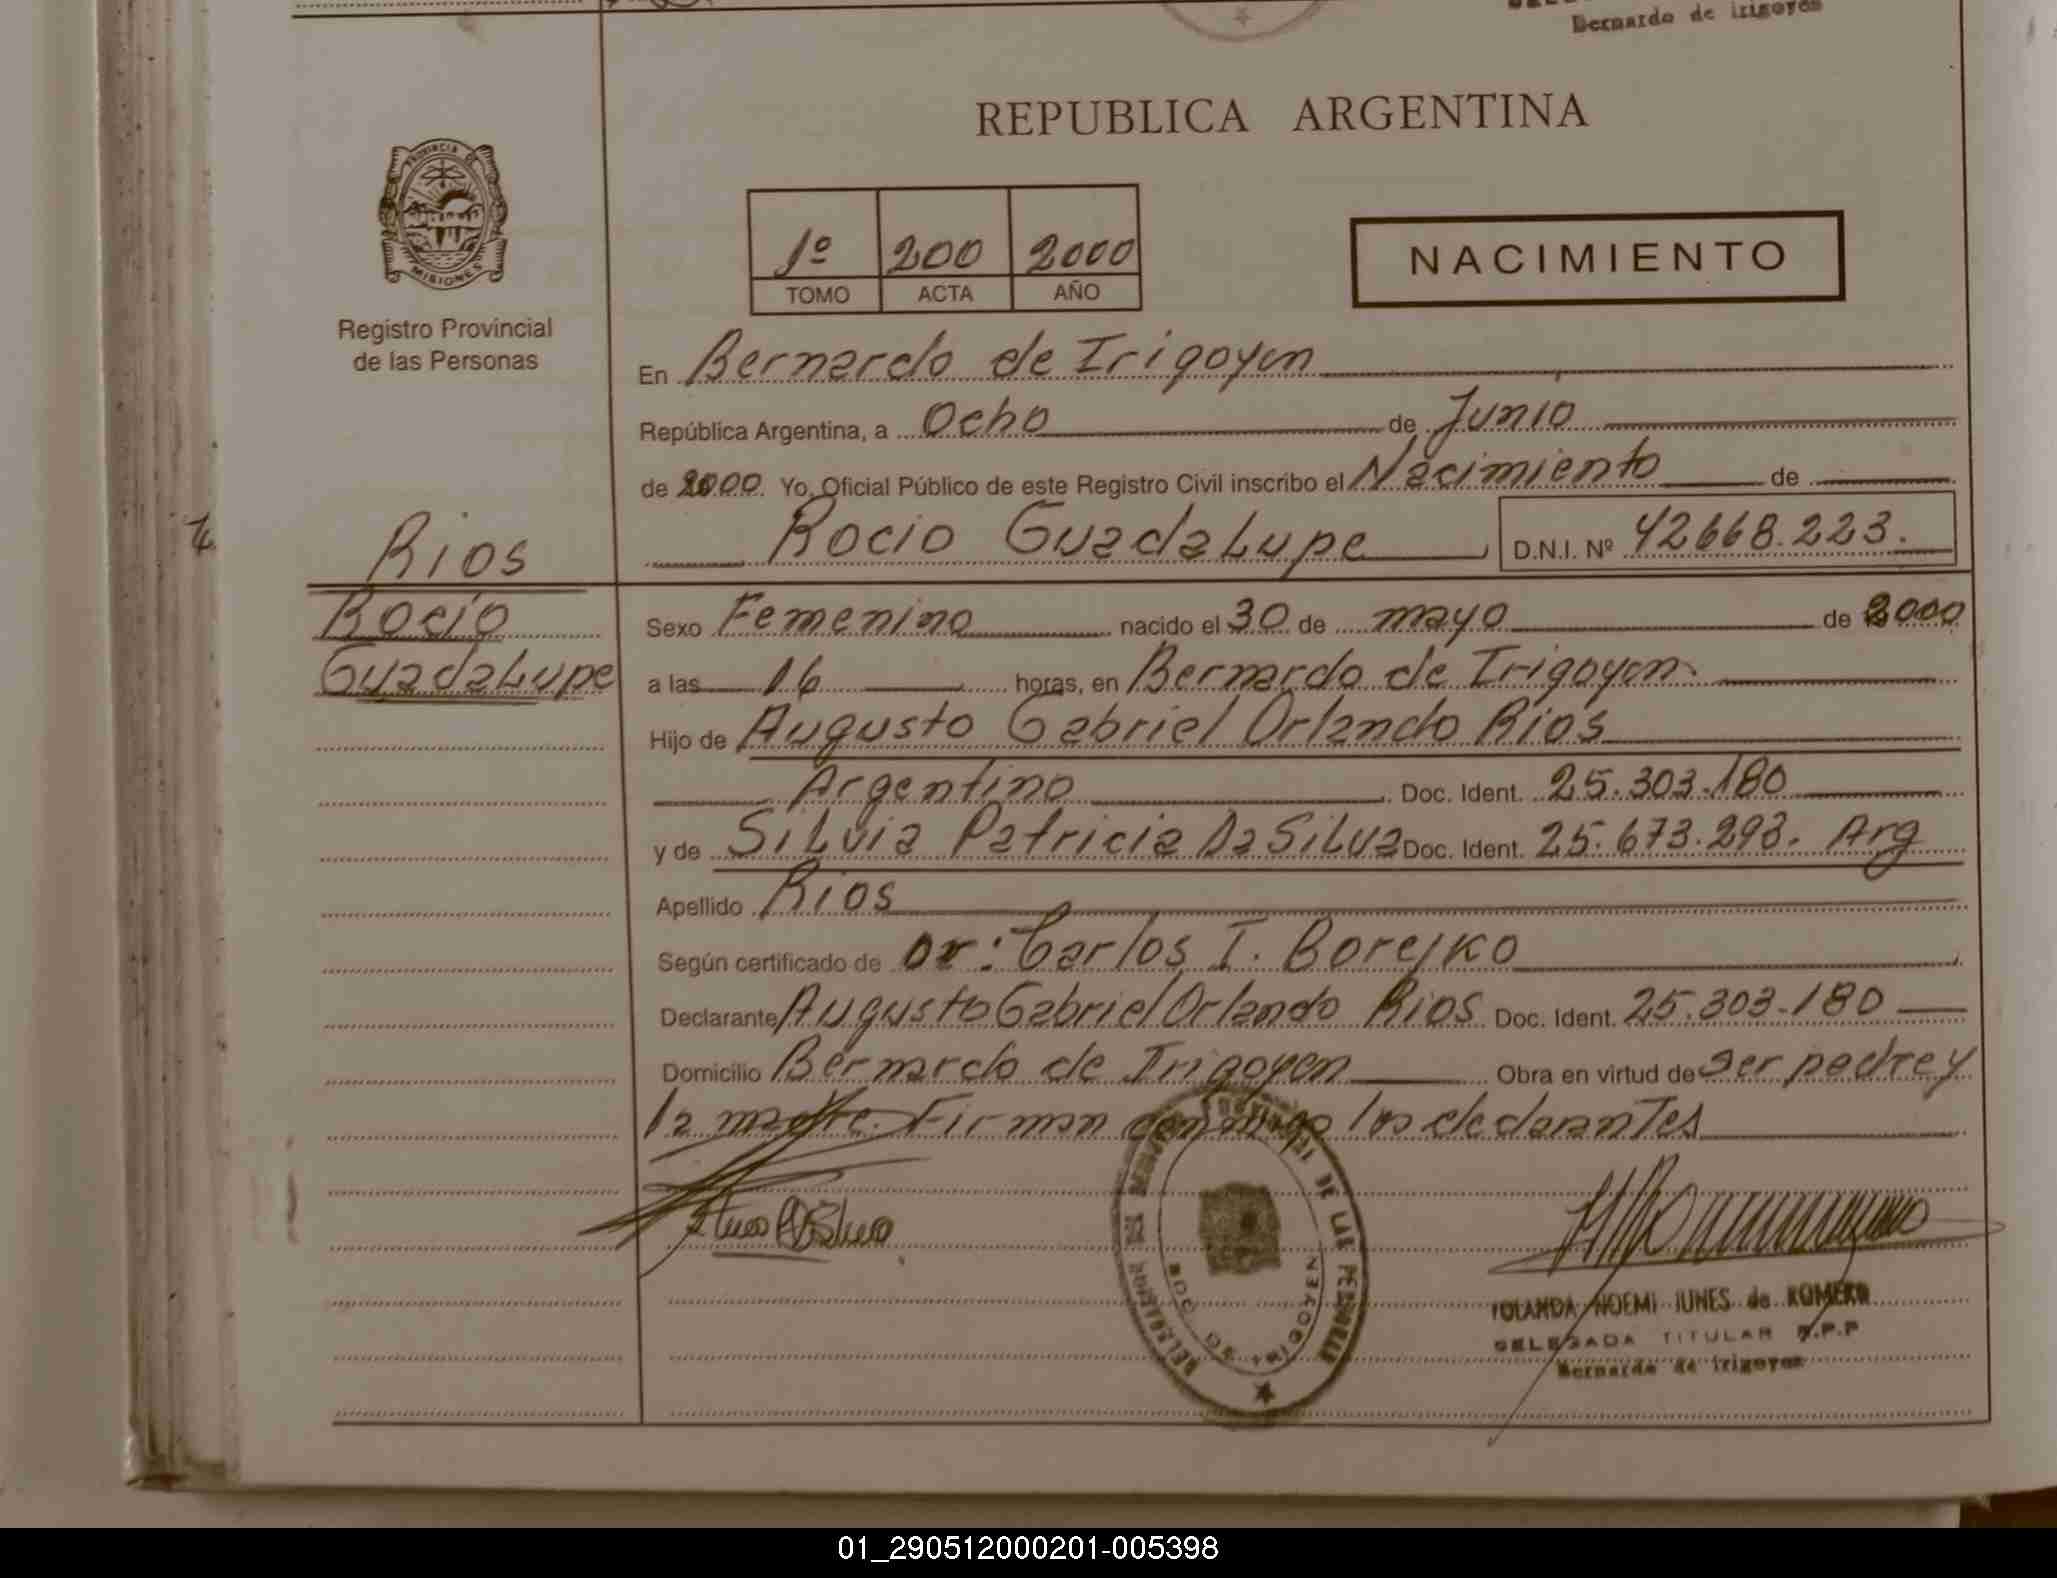 Bernardo de Irigoyen
REPUBLICA ARGENTINA
PROVINCIA DE
MISIONES
Registro Provincial
de las Personas
1º 200 2000
TOMO ACTA AÑO
NACIMIENTO
En Bernardo de Irigoyen
República Argentina, a Ocho de Junio
de 2000 Yo, Oficial Público de este Registro Civil inscribo el Nacimiento de
Rocio Guadalupe D.N.I. Nº 42668.223.
Rios
Rocío
Guadalupe
Sexo Femenino nacido el 30 de mayo de 2000
a las 16 horas, en Bernardo de Irigoyen
Hijo de Augusto Gabriel Orlando Rios
Argentino Doc. Ident. 25.303.180
y de Silvia Patricia Da Silva Doc. Ident. 25.673.293. Arg
Apellido Rios
Según certificado de Dr: Carlos I. Borejko
Declarante Augusto Gabriel Orlando Rios Doc. Ident. 25.303.180
Domicilio Bernardo de Irigoyen Obra en virtud de ser padre y
la madre. Firman conmigo los declarantes
DE LAS PERSONAS
BDO. DE IRIGOYEN
YOLANDA NOEMI IUNES de ROMERO
DELEGADA TITULAR R.P.P
Bernardo de Irigoyen
01_290512000201-005398